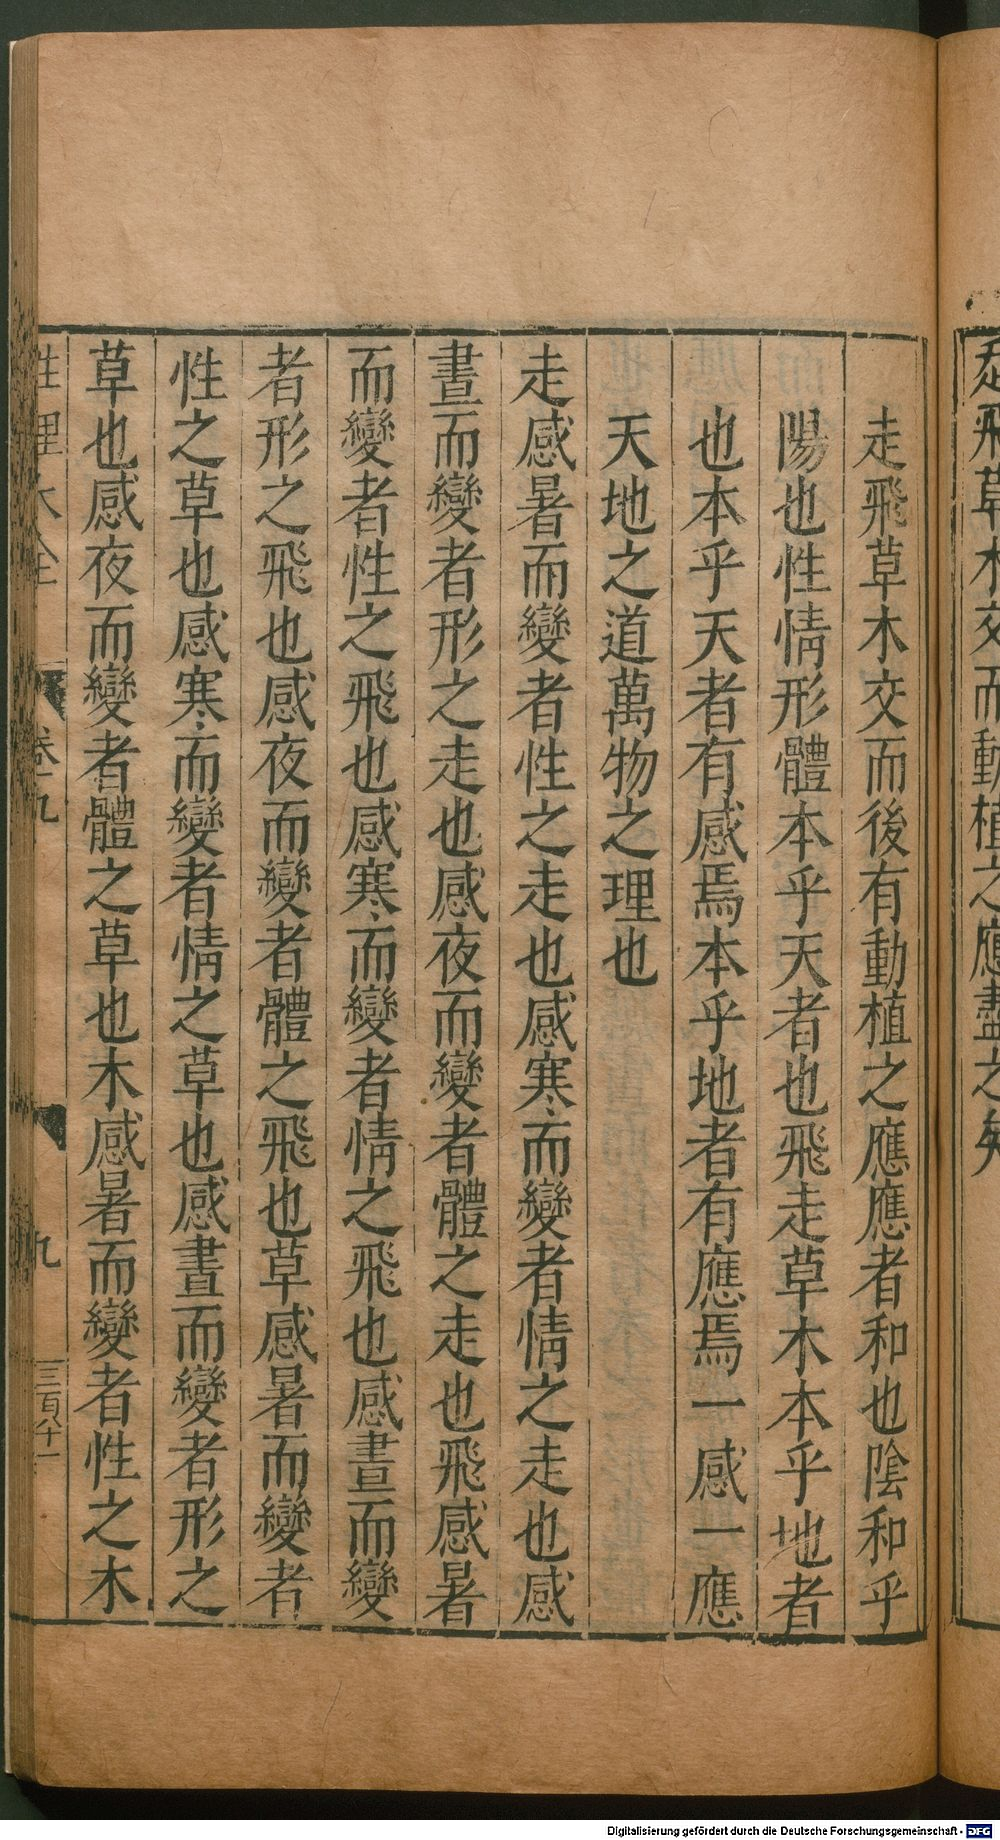 走飛草木交而動植之應盡之矣
走飛草木交而後有動植之應應者和也陰和乎
陽也性情形體本乎天者也飛走草木本乎地者
也本乎天者有感焉本乎地者有應焉一感一應
天地之道萬物之理也
走感暑而變者性之走也感寒而變者情之走也感
晝而變者形之走也感夜而變者體之走也飛感暑
而變者性之飛也感寒而變者情之飛也感晝而變
者形之飛也感夜而變者體之飛也草感暑而變者
性之草也感寒而變者情之草也感晝而變者形之
草也感夜而變者體之草也木感暑而變者性之木
性理大全
卷九
九
三百十一
Digitalisierung gefördert durch die Deutsche Forschungsgemeinschaft - DFG